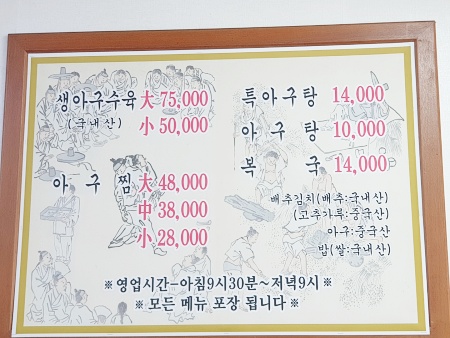 생아구수육 大 75,000
(국내산) 小 50,000
아 구 찜 大 48,000
中 38,000
小 28,000
특아구탕 14,000
아 구 탕 10,000
복 국 14,000
배추김치(배추:국내산)
(고추가루:중국산)
아구:중국산
밥(쌀:국내산)
※영업시간-아침9시30분~저녁9시※
※모든 메뉴 포장 됩니다※